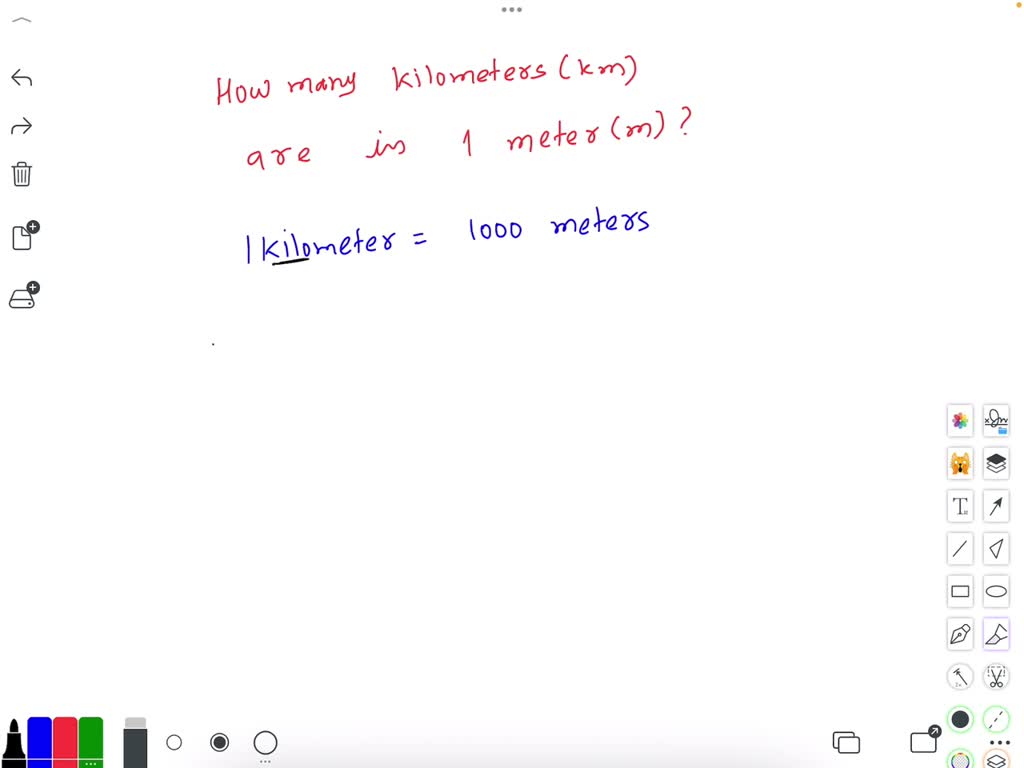 How many kilometers (km)
are in 1 meter (m) ?
1 kilometer = 1000 meters